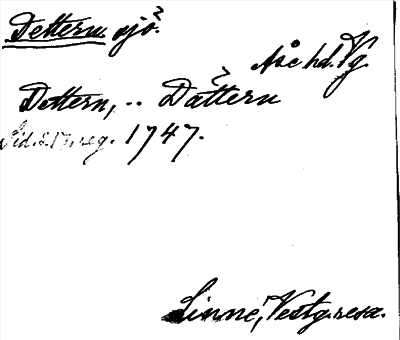 Dettern sjö?
Åse hd. Vg.
Dettern, .. Dättern
Sid. 217, reg. 1747.
Linné, Vestg. resa.